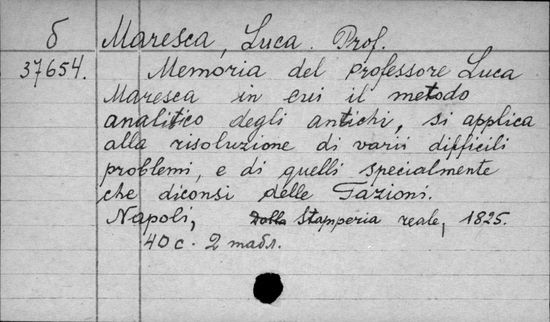 б Maresca, Luca. Prof.
37654. Memoria del professore Luca
Maresca in cui il metodo
analitico degli antichi, si applica
alla risoluzione di varii difficili
problemi, e di quelli specialmente
che diconsi delle Tazioni.
Napoli, Dalla Stamperia reale, 1825.
40 с. 2 табл.